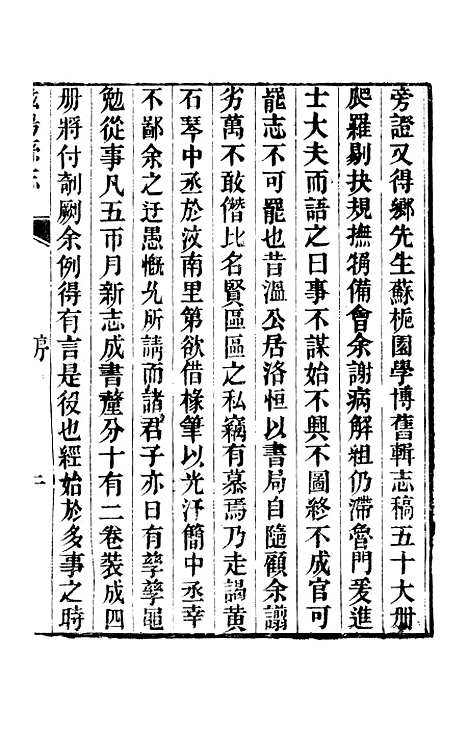 旁證又得鄉先生蘇梔園學博舊輯志稿五十大册
爬羅剔抉規撫犄備會余謝病解組仍滯魯門爰進
士大夫而語之曰事不謀始不興不圖終不成官可
罷志不可罷也昔溫公居洛恒以書局自隨顧余譾
劣萬不敢僭比名賢區區之私竊有慕焉乃走謁黃
石琴中丞於汶南里第欲借椽筆以光汗簡中丞幸
不鄙余之迂愚慨允所請而諸君子亦日有孳孳黽
勉從事凡五帀月新志成書釐分十有二卷裝成四
册將付剞劂余例得有言是役也經始於多事之時
序
二